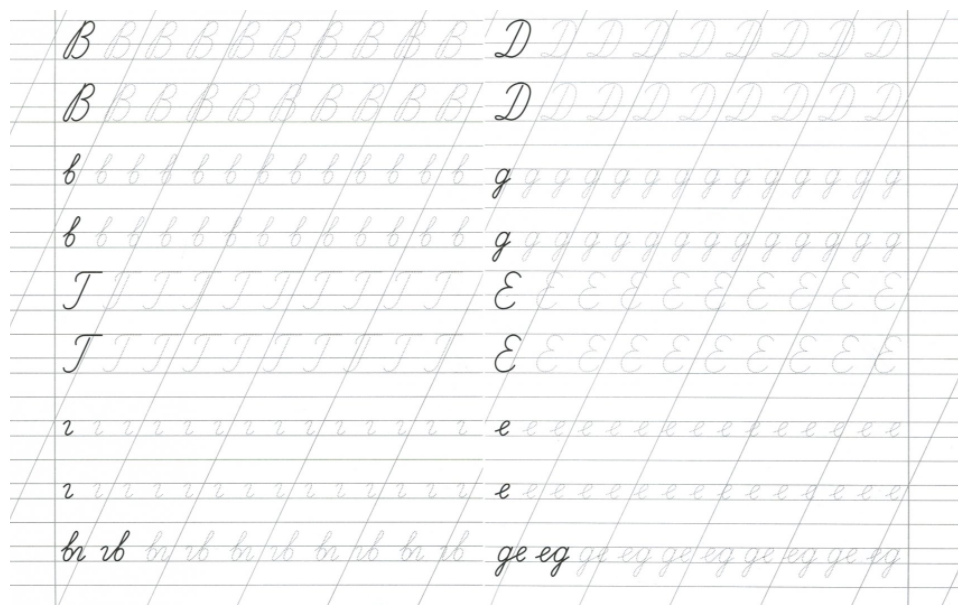 В В В В В В В В В В
В В В В В В В В В В
в в в в в в в в в в в в в
в в в в в в в в в в в в в
Г Г Г Г Г Г Г Г Г Г
Г Г Г Г Г Г Г Г Г Г
г г г г г г г г г г г г г г
г г г г г г г г г г г г г г
вг гв вг гв вг гв вг гв вг гв
Д Д Д Д Д Д Д Д Д
Д Д Д Д Д Д Д Д Д
д д д д д д д д д д д д д д
д д д д д д д д д д д д д д
Е Е Е Е Е Е Е Е Е Е
Е Е Е Е Е Е Е Е Е Е
е е е е е е е е е е е е е е е
е е е е е е е е е е е е е е е
де ед де ед де ед де ед де ед